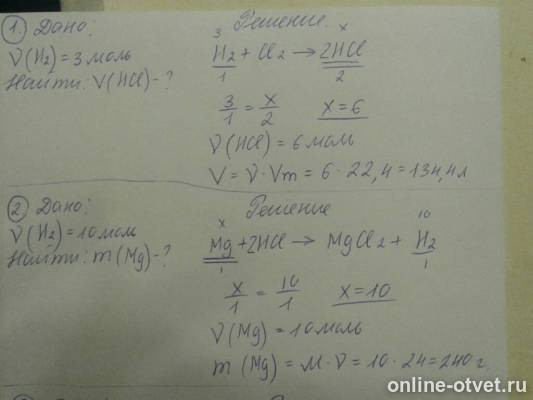 1. Дано:
ν(H2) = 3 моль
Найти: V(HCl) - ?
Решение.
3 x
H2 + Cl2 → 2HCl
1 2
3/1 = x/2 x = 6
ν(HCl) = 6 моль
V = ν · Vm = 6 · 22,4 = 134,4 л
2. Дано:
ν(H2) = 10 моль
Найти: m(Mg) - ?
Решение
x 10
Mg + 2HCl → MgCl2 + H2
1 1
x/1 = 10/1 x = 10
ν(Mg) = 10 моль
m(Mg) = M · ν = 10 · 24 = 240 г.
online-otvet.ru